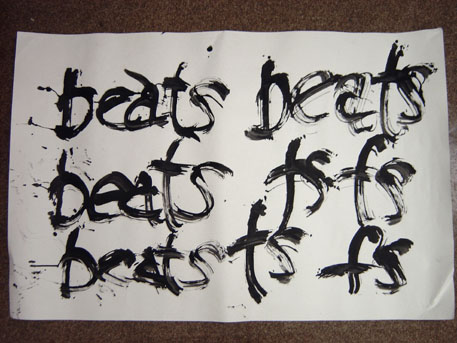 beats beats
beats fs fs
beats fs fs